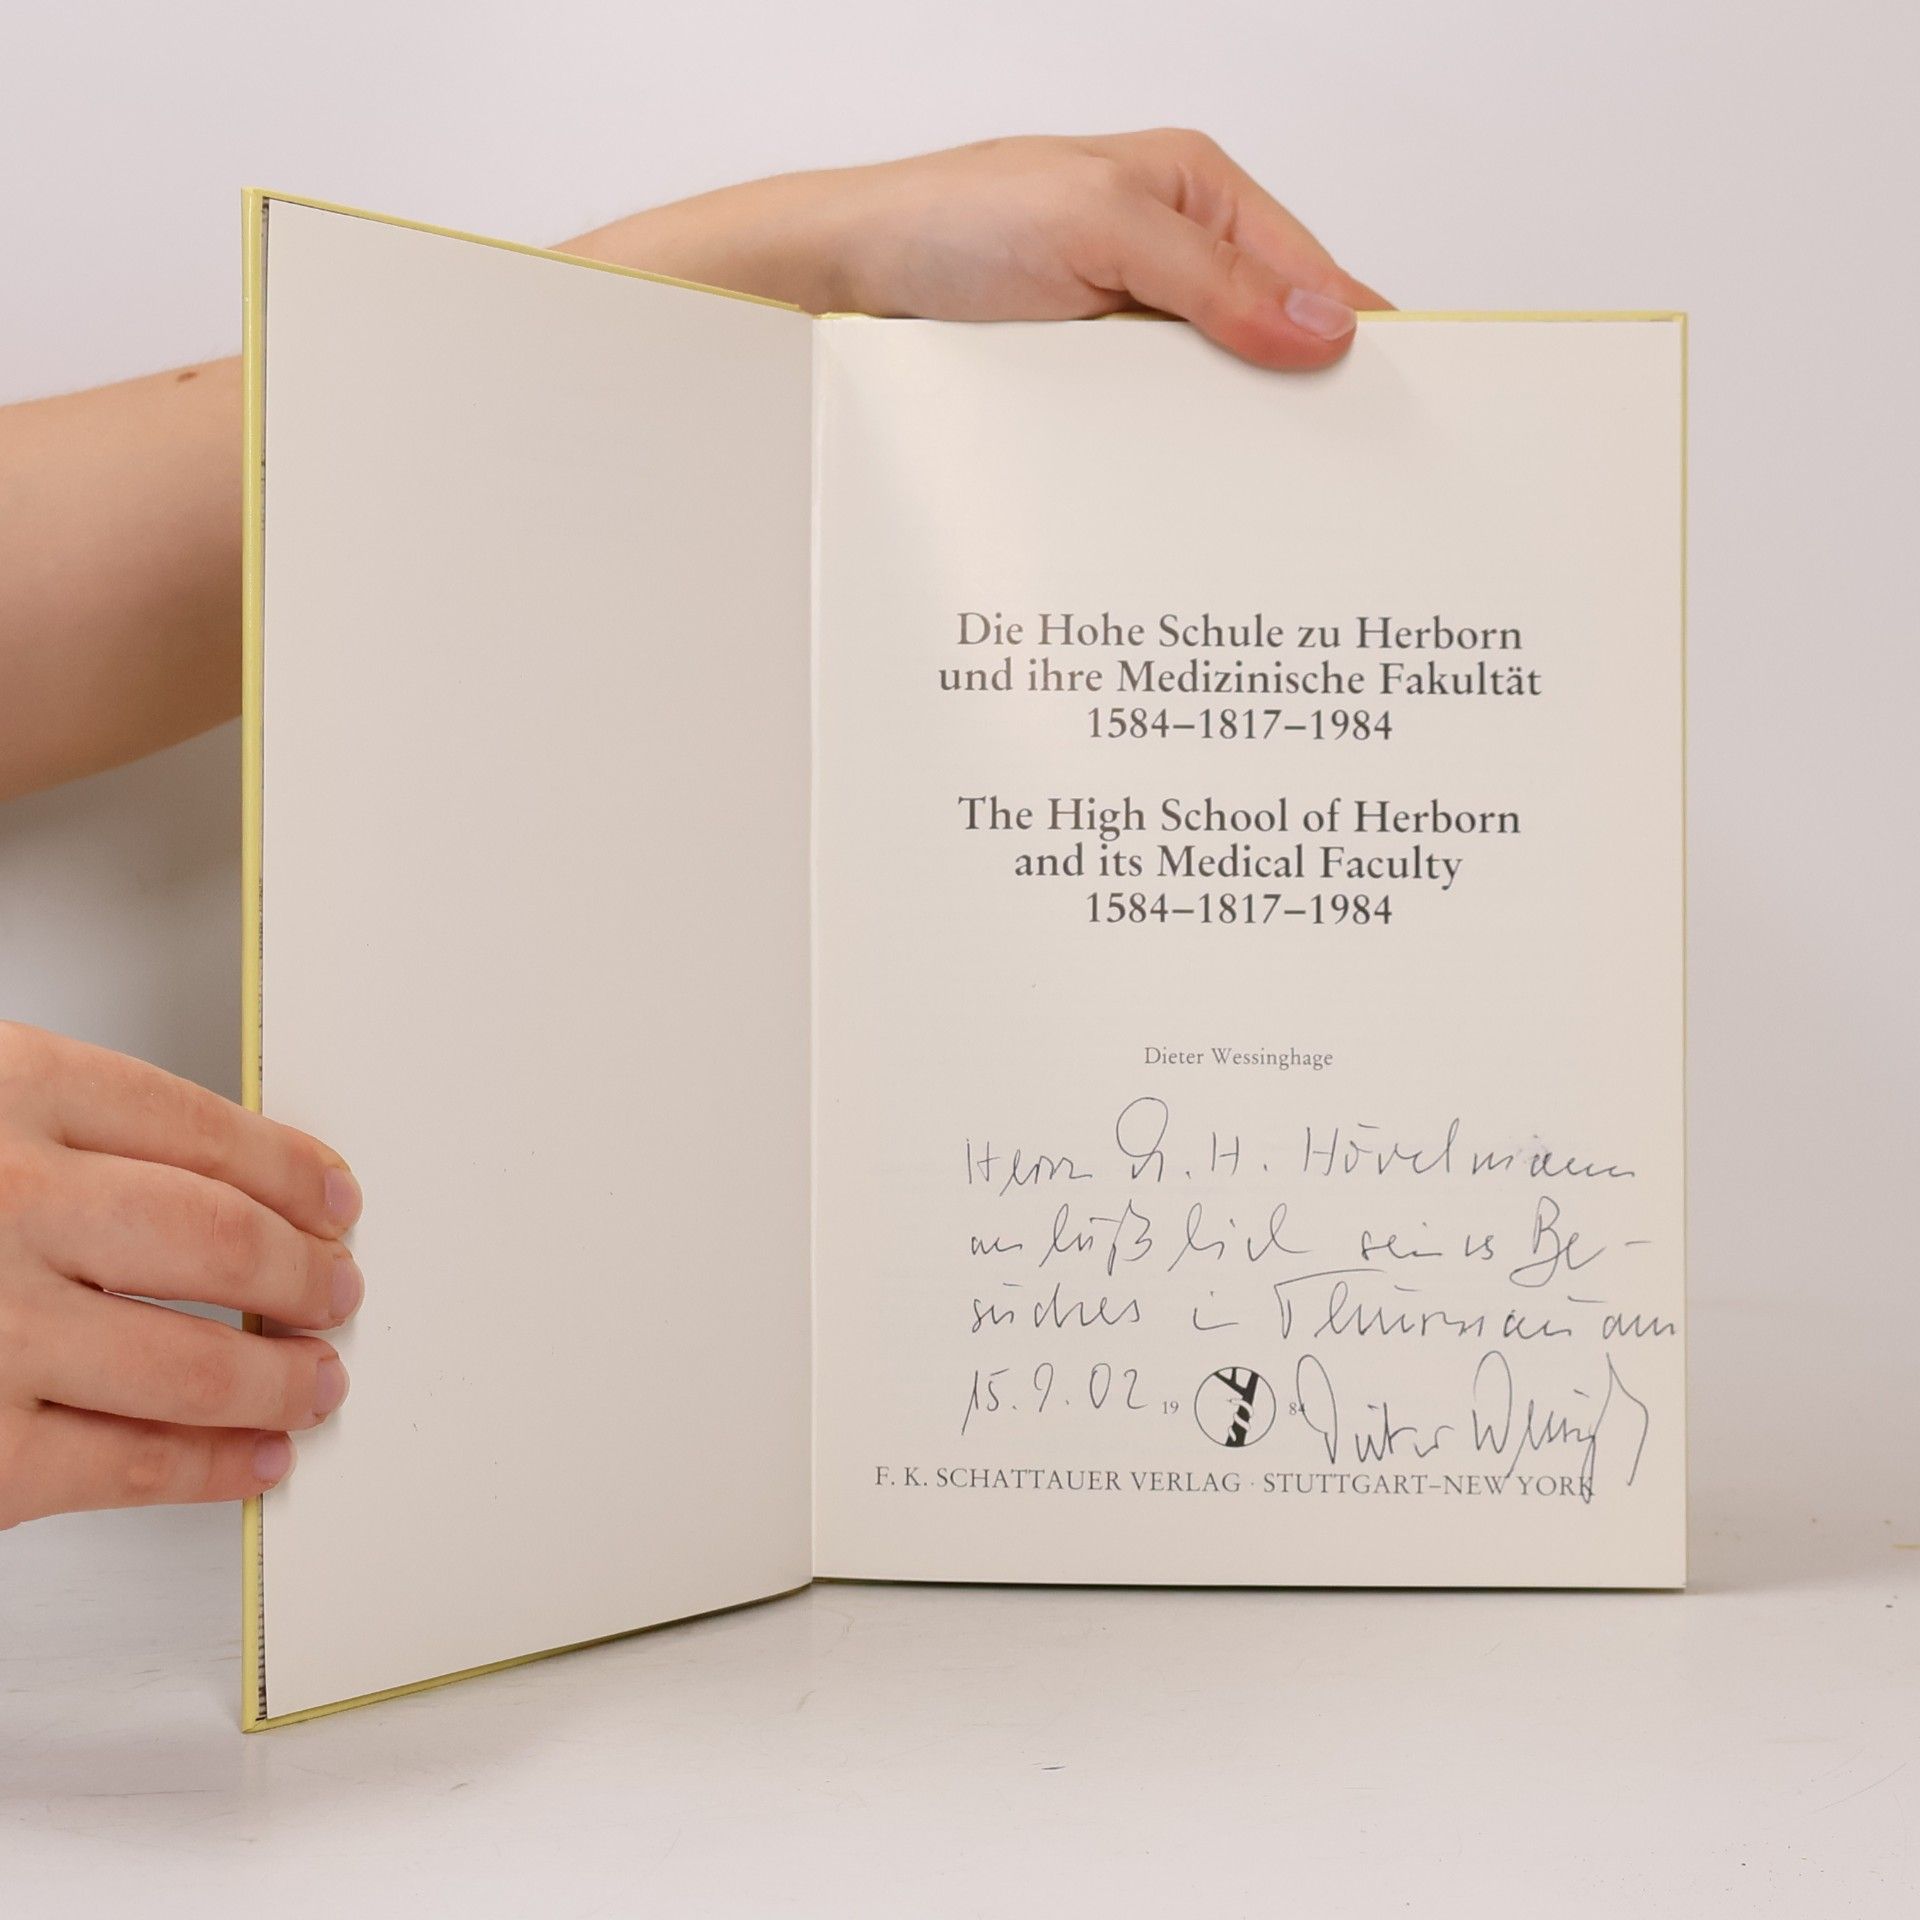 Die Hohe Schule zu Herborn
und ihre Medizinische Fakultät
1584–1817–1984
The High School of Herborn
and its Medical Faculty
1584–1817–1984
Dieter Wessinghage
Herrn Dr. H. Hövelmann
anläßlich seines Be-
suches in Thurnau am
15.9.02
19 84
Dieter Wessinghage
F. K. SCHATTAUER VERLAG · STUTTGART–NEW YORK